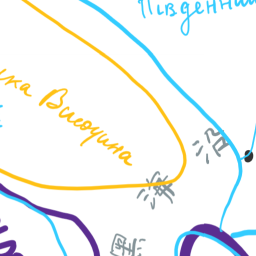 Південний
ка Височина
沿
海
黑